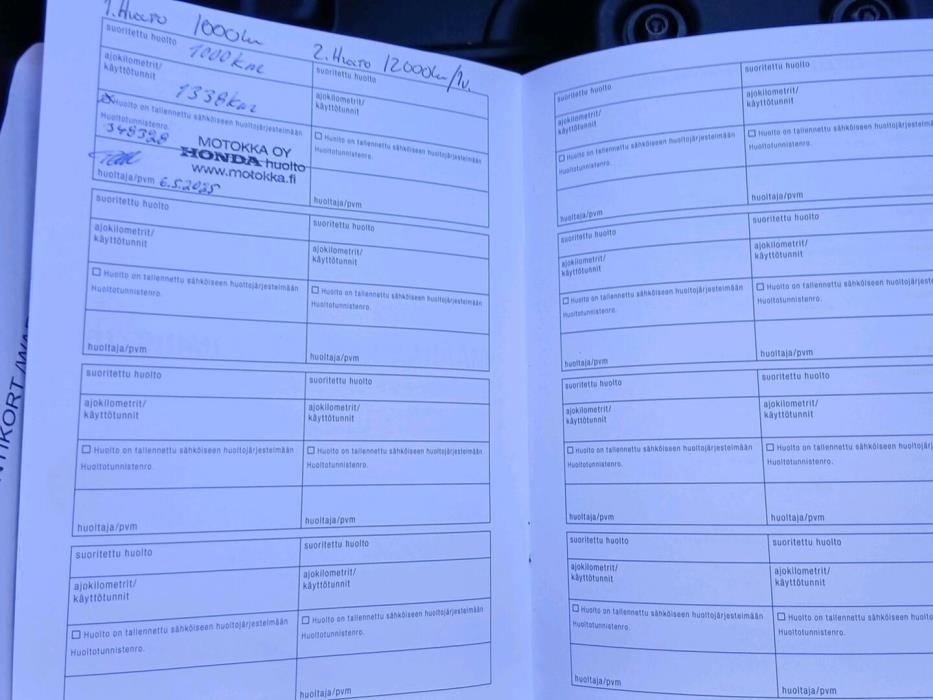 1. Huolto 1000km
2. Huolto 12000km/1v.
suoritettu huolto 1000km
ajokilometrit/
käyttötunnit
1338km
Huolto on tallennettu sähköiseen huoltojärjestelmään
Huoltotunnistenro.
348328
MOTOKKA OY
HONDA huolto
www.motokka.fi
huoltaja/pvm 6.5.2025
suoritettu huolto
ajokilometrit/
käyttötunnit
Huolto on tallennettu sähköiseen huoltojärjestelmään
Huoltotunnistenro.
huoltaja/pvm
suoritettu huolto
ajokilometrit/
käyttötunnit
Huolto on tallennettu sähköiseen huoltojärjestelmään
Huoltotunnistenro.
huoltaja/pvm
suoritettu huolto
ajokilometrit/
käyttötunnit
Huolto on tallennettu sähköiseen huoltojärjestelmään
Huoltotunnistenro.
huoltaja/pvm
suoritettu huolto
ajokilometrit/
käyttötunnit
Huolto on tallennettu sähköiseen huoltojärjestelmään
Huoltotunnistenro.
huoltaja/pvm
suoritettu huolto
ajokilometrit/
käyttötunnit
Huolto on tallennettu sähköiseen huoltojärjestelmään
Huoltotunnistenro.
huoltaja/pvm
suoritettu huolto
ajokilometrit/
käyttötunnit
Huolto on tallennettu sähköiseen huoltojärjestelmään
Huoltotunnistenro.
suoritettu huolto
ajokilometrit/
käyttötunnit
Huolto on tallennettu sähköiseen huoltojärjestelmään
Huoltotunnistenro.
huoltaja/pvm
suoritettu huolto
ajokilometrit/
käyttötunnit
Huolto on tallennettu sähköiseen huoltojärjestelmään
Huoltotunnistenro.
huoltaja/pvm
suoritettu huolto
ajokilometrit/
käyttötunnit
Huolto on tallennettu sähköiseen huoltojärjestelm
Huoltotunnistenro.
huoltaja/pvm
suoritettu huolto
ajokilometrit/
käyttötunnit
Huolto on tallennettu sähköiseen huoltojärjestelmään
Huoltotunnistenro.
huoltaja/pvm
suoritettu huolto
ajokilometrit/
käyttötunnit
Huolto on tallennettu sähköiseen huoltojärjeste
Huoltotunnistenro.
huoltaja/pvm
suoritettu huolto
ajokilometrit/
käyttötunnit
Huolto on tallennettu sähköiseen huoltojärjestelmään
Huoltotunnistenro.
huoltaja/pvm
suoritettu huolto
ajokilometrit/
käyttötunnit
Huolto on tallennettu sähköiseen huoltojärj
Huoltotunnistenro.
huoltaja/pvm
suoritettu huolto
ajokilometrit/
käyttötunnit
Huolto on tallennettu sähköiseen huoltojärjestelmään
Huoltotunnistenro.
huoltaja/pvm
suoritettu huolto
ajokilometrit/
käyttötunnit
Huolto on tallennettu sähköiseen huolto
Huoltotunnistenro.
huoltaja/pvm